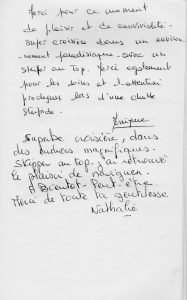 Merci pour ce moment
de plaisir et de convivialité.
super croisière dans un environ
-nement paradisiaque. avec un
skiper au Top. Merci également
pour les soins et l'attention
prodigués lors d'une chute
stupide.
Superbe croisière, dans
des endroits magnifiques.
Skipper au top. j'ai retrouvé
le plaisir de naviguer.
A Bientôt Peut-être.
Merci de toute ta gentillesse
Nathalie